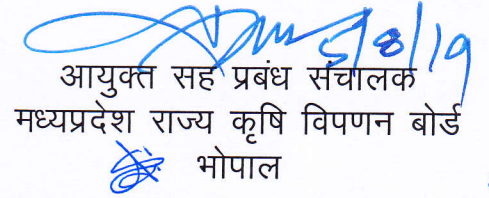 5/8/19
आयुक्त सह प्रबंध संचालक
मध्यप्रदेश राज्य कृषि विपणन बोर्ड
भोपाल